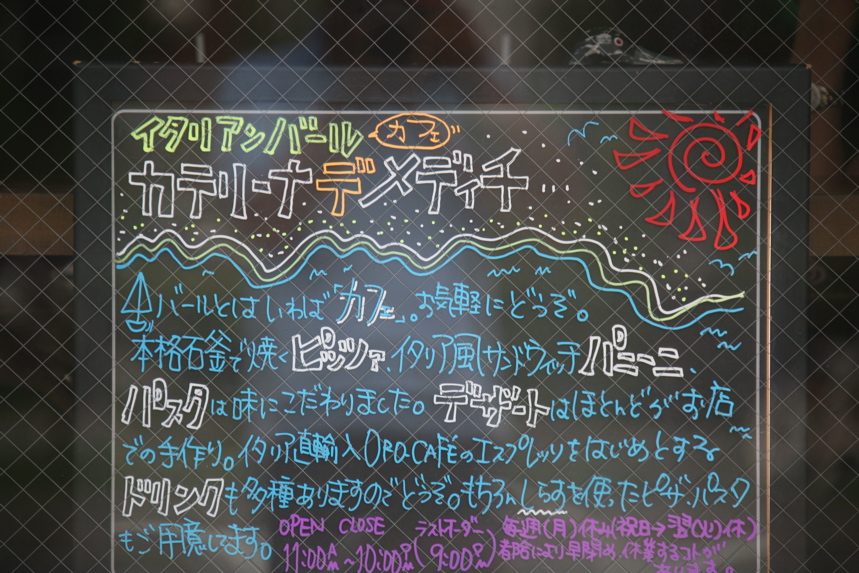 イタリアンバール カフェ
カテリーナデメディチ...
バールとはいわば「カフェ」。お気軽にどうぞ。
本格石釜で焼くピッツァ、イタリア風サンドウィッチパニーニ、
パスタは味にこだわりました。デザートはほとんどがお店
での手作り。イタリア直輸入ORO.CAFÉのエスプレッソをはじめとする
ドリンクも多種ありますのでどうぞ。もちろんしらすを使ったピザ、パスタ
もご用意してます。
OPEN CLOSE ラストオーダー
11:00AM～10:00PM(9:00PM)
毎週(月)休み(祝日→翌(火)休)
都合により早閉め、休業するコトが
あります。